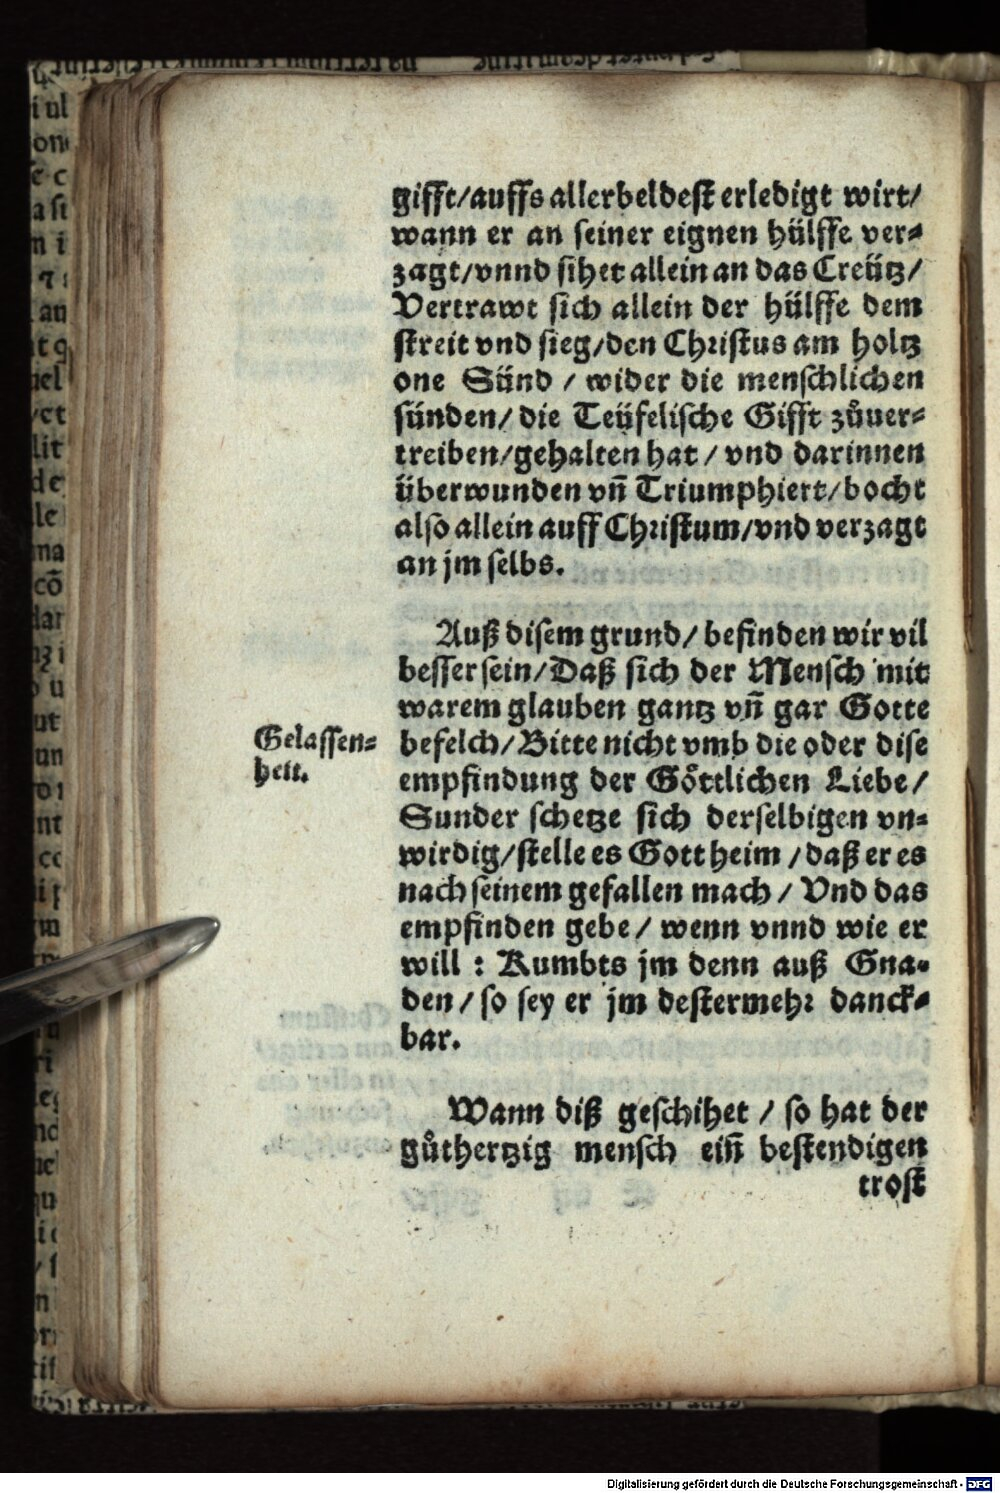 gifft/auffs allerbeldest erledigt wirt/
wann er an seiner eignen hülffe ver-
zagt/vnnd sihet allein an das Creütz/
Vertrawt sich allein der hülffe dem
streit vnd sieg/den Christus am holtz
one Sünd / wider die menschlichen
sünden/ die Teüfelische Gifft zůuer-
treiben/gehalten hat / vnd darinnen
überwunden vñ Triumphiert/bocht
also allein auff Christum/vnd verzagt
an jm selbs.
Auß disem grund/ befinden wir vil
besser sein/Daß sich der Mensch mit
warem glauben gantz vñ gar Gotte
befelch/Bitte nicht vmb die oder dise
empfindung der Göttlichen Liebe/
Sunder schetze sich derselbigen vn-
wirdig/stelle es Gott heim /daß er es
nach seinem gefallen mach / Vnd das
empfinden gebe/ wenn vnnd wie er
will : Kumbts jm denn auß Gna-
den/ so sey er jm destermehr danck-
bar.
Gelassen-
heit.
Wann diß geschihet / so hat der
gůthertzig mensch eiñ bestendigen
trost
Digitalisierung gefördert durch die Deutsche Forschungsgemeinschaft - DFG